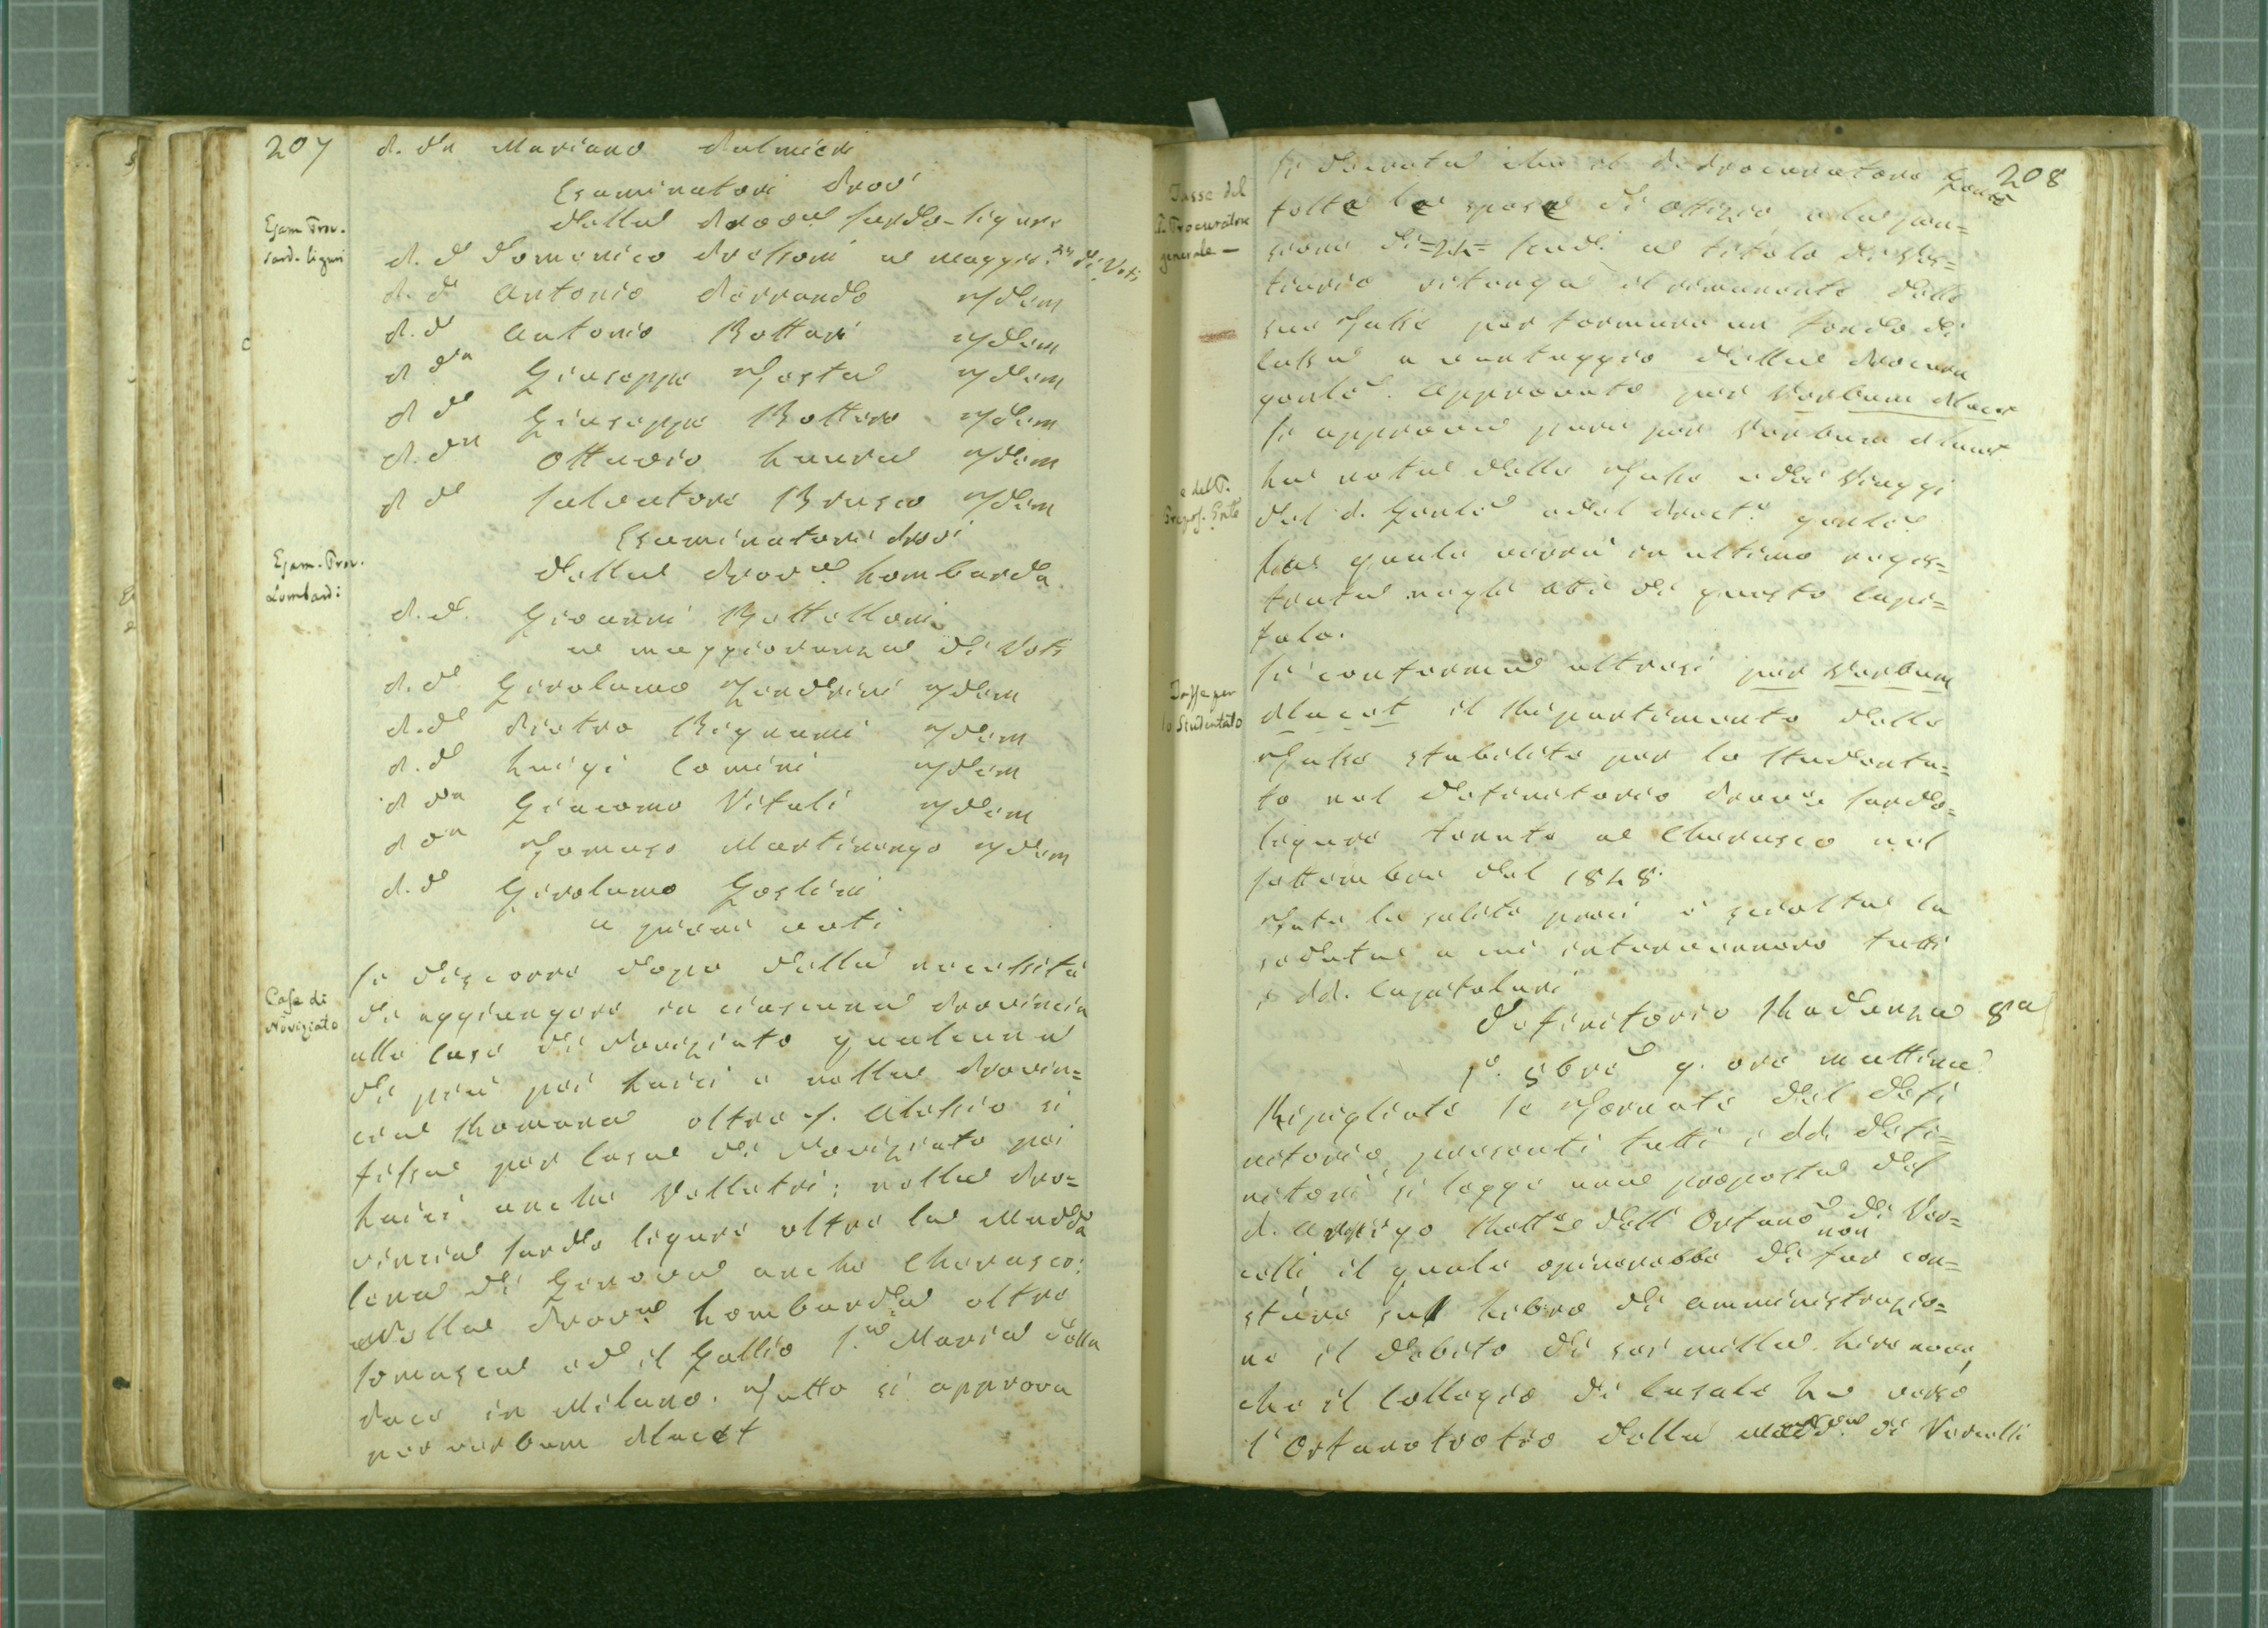 207
P. Dn Mariano Palmieri
Esaminatori Prov.i
Della Prov.a Sardo-ligure
Esam. Prov.
Sard. liguri
P. D. Domenico Pressoni a maggior.za di Voti
P. D. Antonio Parrando Idem
P. D. Antonio Bottari Idem
P. Dn Giuseppe Testa Idem
P. D. Giuseppe Bottero Idem
P. Dn Ottavio Laura Idem
P. D. Salvatore Brusco Idem
Esaminatori Prov.i
Della Prov.a Lombarda
Esam. Prov.
Lombardi
P. D. Giovanni Battelloni
a maggioranza di Voti
P. D. Girolamo Zendrini Idem
P. D. Pietro Bignami Idem
P. D. Luigi Comini Idem
P. Dn Giacomo Vitali Idem
P. Dn Tomaso Martinengo Idem
P. D. Girolamo Gaslini
a pieni voti
Case di
Noviziato
Si discorre dopo della necessità
di aggiungere in ciascuna Provincia
alle Case di Noviziato qualcuna
di più pei Laici e nella Provin=
cia Romana oltre S. Alessio si
fissa per Casa di Noviziato pei
Laici anche Velletri; nella Pro=
vincia Sardo ligure oltre la Madda
lena di Genova anche Cherasco;
Nella Prov.a Lombarda oltre
Somasca ed il Gallio S.a Maria della
Pace in Milano. Tutto si approva
per verbum Placet
208
Tasse del
P. Procuratore
generale —
Si decreta che il P. Procuratore Gen.e
tolte le spese di Offizio e la pen=
sione di =24= scudi a titolo di Ves=
tiario ritenga il rimanente delle
sue Tasse per formare un fondo di
Cassa a vantaggio della Procura
gen.le. Approvato per Verbum Placet
e del P.
Prepos. Gnle
Si approva pure per Verbum Placet
la nota delle Tasse e dei Viaggi
del P. Gen.le e del Proc.e gen.le
La quale verrà in ultimo regis=
trata negli Atti di questo Capi=
tolo.
Tasse per
lo Studentato
Si conferma altresì per Verbum
Placet il Ripartimento delle
Tasse stabilito per lo Studenta=
to nel Definitorio Prov.e Sardo=
ligure tenuto a Cherasco nel
settembre del 1848.
Fatte le solite preci è sciolta la
seduta a cui intervennero tutti
i PP. Capitolari
Definitorio Radunza 8a
1°. 9bre 9. ore mattina
Ripigliate le Tornate del Defi
nitorio presenti tutti i PP. Defi=
nitori si legge una proposta del
P. Arrigo Rett.e dell' Orfano.o di Ver=
celli il quale opinerebbe di non far con=
stare sul Libro di Amministrazio=
ne il debito di sei milla Lire nove,
che il Collegio di Casale ha verso
l'Orfanotrofio della Madd.a di Vercelli